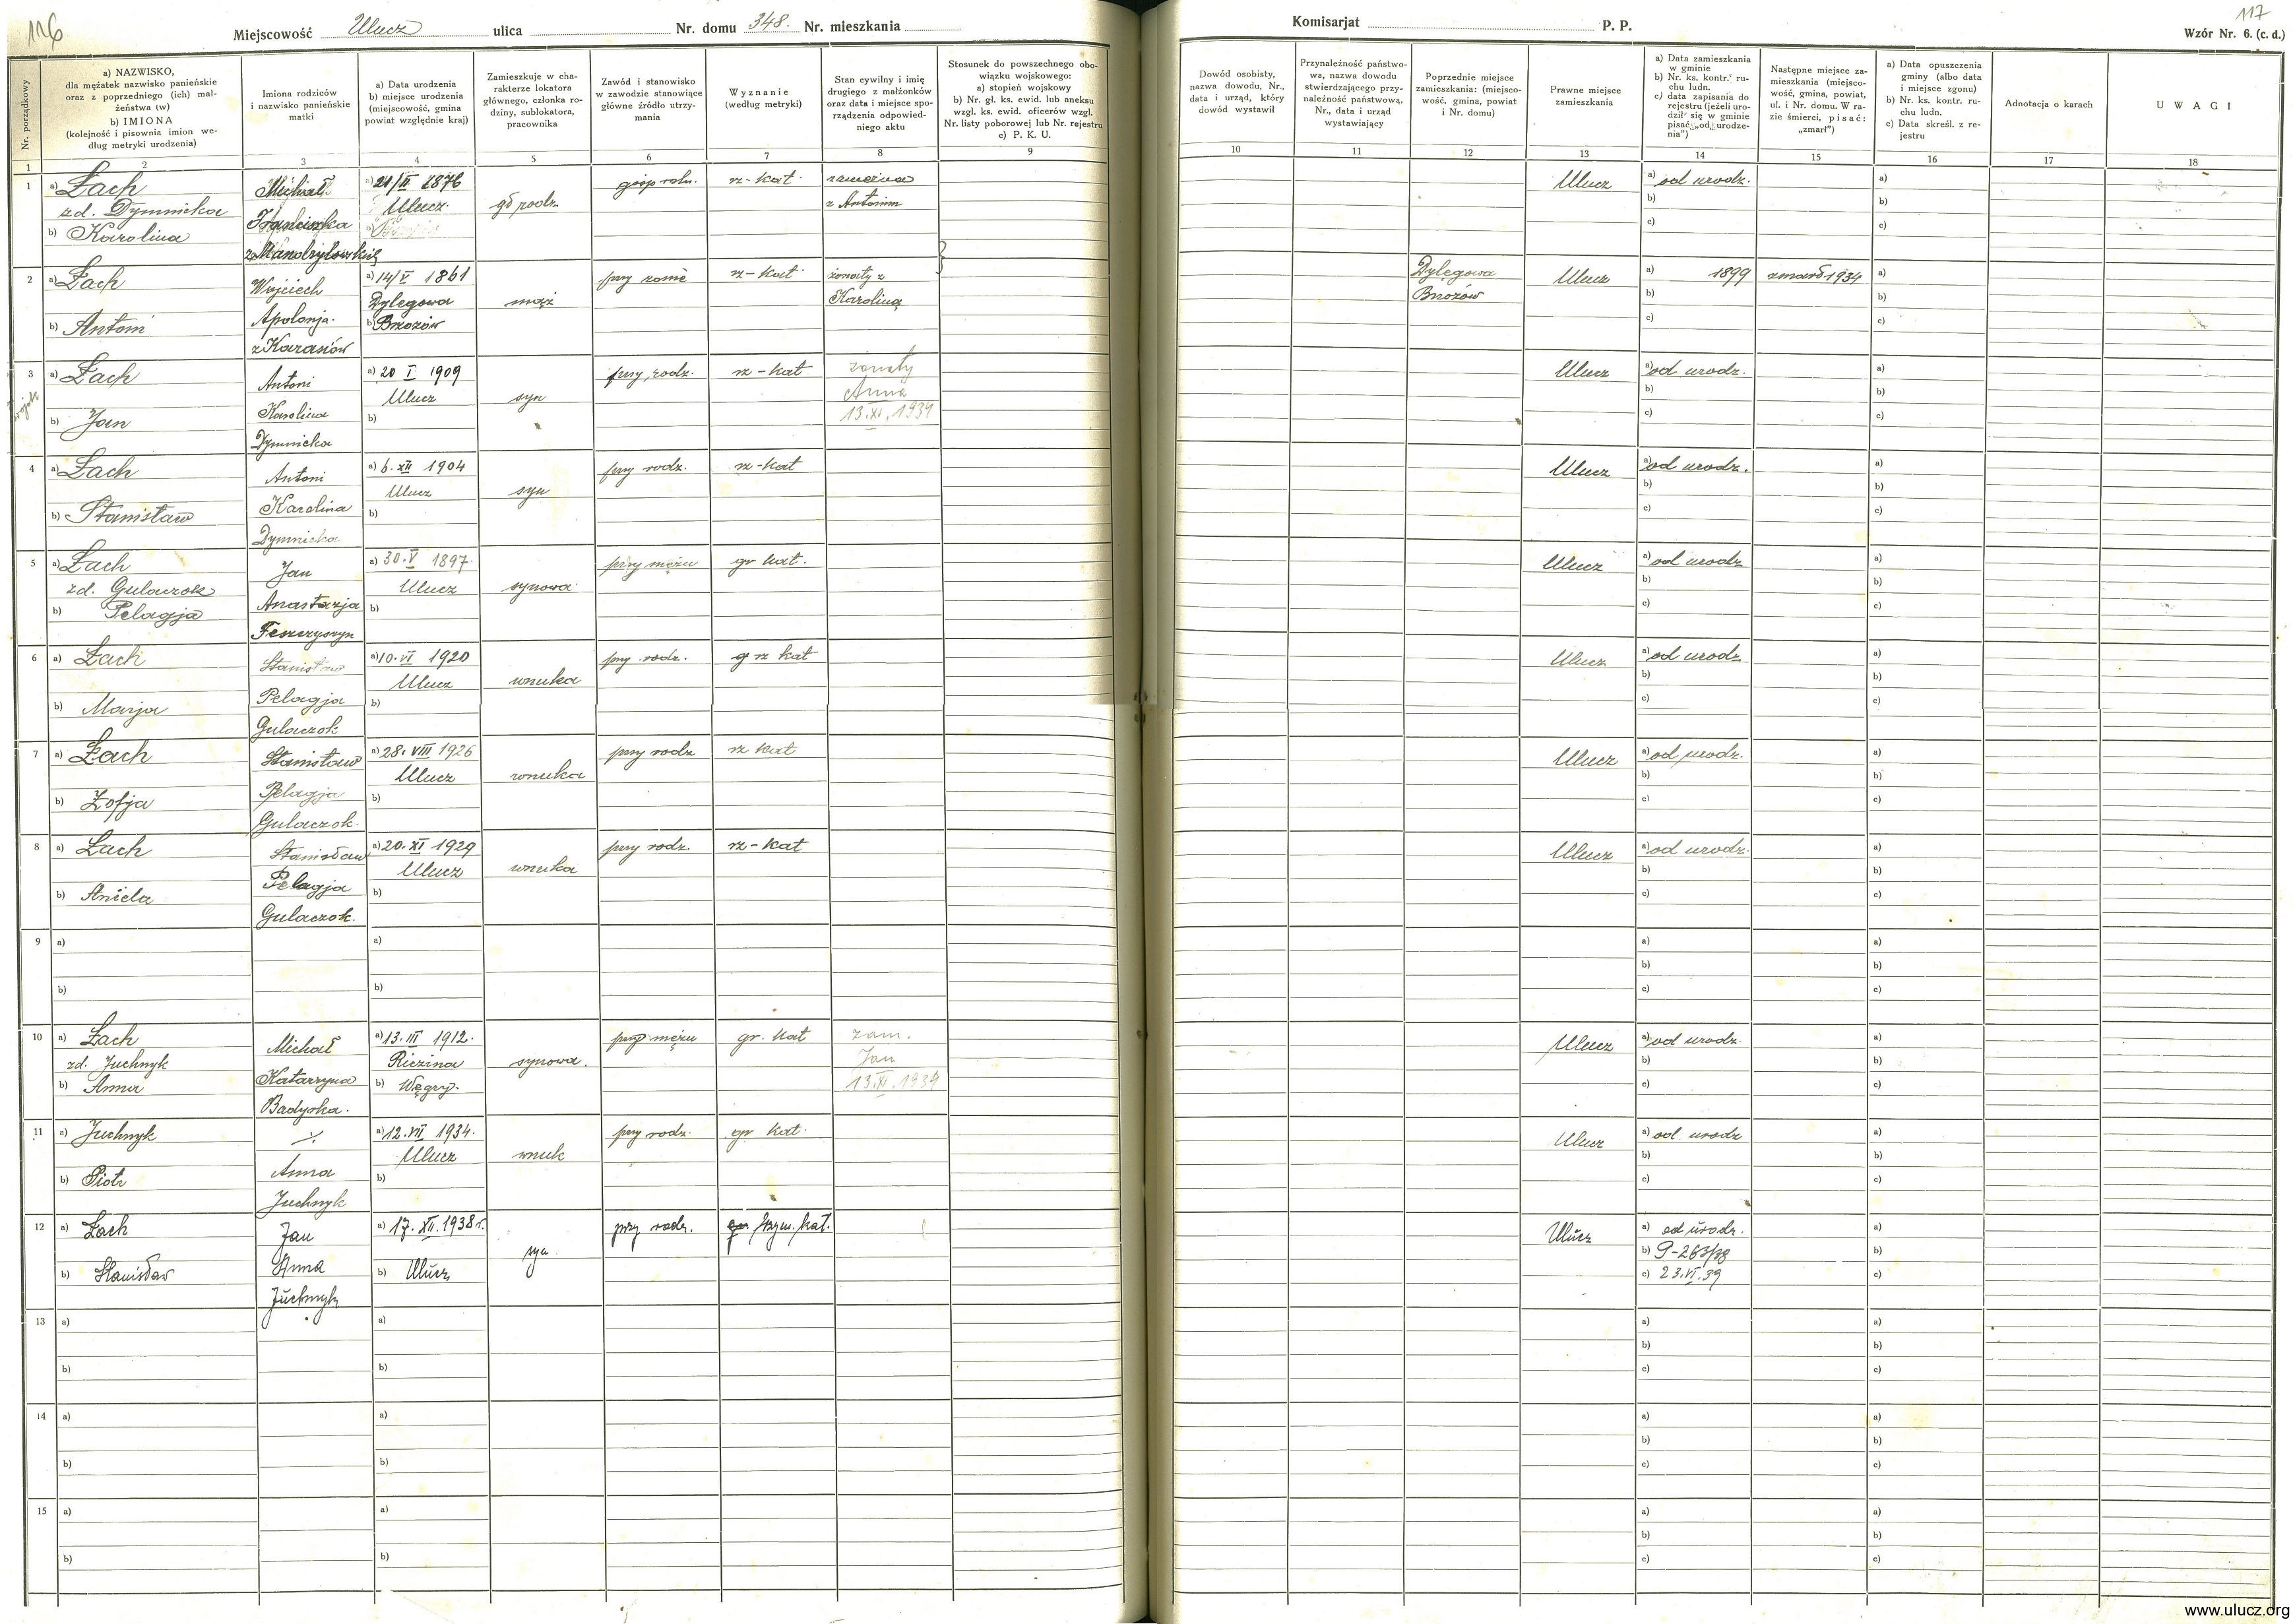 116
Miejscowość Ulucz ulica Nr. domu 348. Nr. mieszkania
Komisarjat P. P.
117
Wzór Nr. 6. (c. d.)
Nr. porządkowy
a) NAZWISKO,
dla mężatek nazwisko panieńskie
oraz z poprzedniego (ich) mał-
żeństwa (w)
b) IMIONA
(kolejność i pisownia imion we-
dług metryki urodzenia)
Imiona rodziców
i nazwisko panieńskie
matki
a) Data urodzenia
b) miejsce urodzenia
(miejscowość, gmina
powiat względnie kraj)
Zamieszkuje w cha-
rakterze lokatora
głównego, członka ro-
dziny, sublokatora,
pracownika
Zawód i stanowisko
w zawodzie stanowiące
główne źródło utrzy-
mania
Wyznanie
(według metryki)
Stan cywilny i imię
drugiego z małżonków
oraz data i miejsce spo-
rządzenia odpowied-
niego aktu
Stosunek do powszechnego obo-
wiązku wojskowego:
a) stopień wojskowy
b) Nr. gł. ks. ewid. lub aneksu
wzgl. ks. ewid. oficerów wzgl.
Nr. listy poborowej lub Nr. rejestru
c) P. K. U.
Dowód osobisty,
nazwa dowodu, Nr.,
data i urząd, który
dowód wystawił
Przynależność państwo-
wa, nazwa dowodu
stwierdzającego przy-
należność państwową,
Nr., data i urząd
wystawiający
Poprzednie miejsce
zamieszkania: (miejsco-
wość, gmina, powiat
i Nr. domu)
Prawne miejsce
zamieszkania
a) Data zamieszkania
w gminie
b) Nr. ks. kontr. ru-
chu ludn.
c) data zapisania do
rejestru (jeżeli uro-
dził się w gminie
pisać „od urodze-
nia")
Następne miejsce za-
mieszkania (miejsco-
wość, gmina, powiat,
ul. i Nr. domu. W ra-
zie śmierci, pisać:
„zmarł")
a) Data opuszczenia
gminy (albo data
i miejsce zgonu)
b) Nr. ks. kontr. ru-
chu ludn.
c) Data skreśl. z re-
jestru
Adnotacja o karach
UWAGI
1 2 3 4 5 6 7 8 9 10 11 12 13 14 15 16 17 18
1 a) Łach Michał a) 21/II 1876 gosp roln. rz-kat. zamężna Ulucz a) od urodz. a)
zd. Dymnicka Ulucz. gł rodz. z Antonim b) b)
b) Karolina Franciszka b) c) c)
2 a) Łach Wojciech a) 14/V 1861 przy żonie rz-kat. żonaty z Dylągowa Ulucz a) 1899 zmarł 1934 a)
Dylągowa mąż Karoliną Brzozów b) b)
b) Antoni Apolonja b) Brzozów c) c)
z Karasiów
3 a) Łach Antoni a) 20 I 1909 przy rodz. rz-kat żonaty Ulucz a) od urodz. a)
Ulucz syn Anna b) b)
b) Jan Karolina b) 13.XI.1934 c) c)
Dymnicka
4 a) Łach Antoni a) 6. XII 1904 przy rodz. rz-kat Ulucz a) od urodz. a)
Ulucz syn b) b)
b) Stanisław Karolina b) c) c)
Dymnicka
5 a) Łach Jan a) 30. V 1897. przy mężu gr kat. Ulucz a) od urodz a)
zd. Gulaczok Ulucz synowa b) b)
b) Pelagja Anastazja b) c) c)
Feszczyszyn
6 a) Łach Stanisław a) 10. VI 1920 przy rodz. g rz kat Ulucz a) od urodz a)
Ulucz wnuka b) b)
b) Marja Pelagja b) c) c)
Gulaczok
7 a) Łach Stanisław a) 28. VIII 1926 przy rodz rz kat Ulucz a) od urodz. a)
Ulucz wnuka b) b)
b) Zofja Pelagja b) c) c)
Gulaczok.
8 a) Łach Stanisław a) 20. XI 1929 przy rodz. rz-kat Ulucz a) od urodz. a)
Ulucz wnuka b) b)
b) Aniela Pelagja b) c) c)
Gulaczok.
9 a) a) a) a)
b) b)
b) b) c) c)
10 a) Łach Michał a) 13. III 1912. przy mężu gr. kat zam. Ulucz a) od urodz. a)
zd. Juchnyk Riczina synowa. Jan b) b)
b) Anna Katarzyna b) Węgry. 13.XI.1934 c) c)
Badyrka.
11 a) Juchnyk a) 12. VII 1934. przy rodz. gr kat. Ulucz a) od urodz a)
Ulucz wnuk b) b)
b) Piotr Anna b) c) c)
Juchnyk
12 a) Łach Jan a) 17. XII. 1938 r. przy rodz. rzym. kat. Ulucz a) od urodz. a)
syn b) 9-263/38 b)
b) Stanisław Anna b) Ulucz c) 23.VI.39 c)
Juchnyk
13 a) a) a) a)
b) b)
b) b) c) c)
14 a) a) a) a)
b) b)
b) b) c) c)
15 a) a) a) a)
b) b)
b) b) c) c)
www.ulucz.org